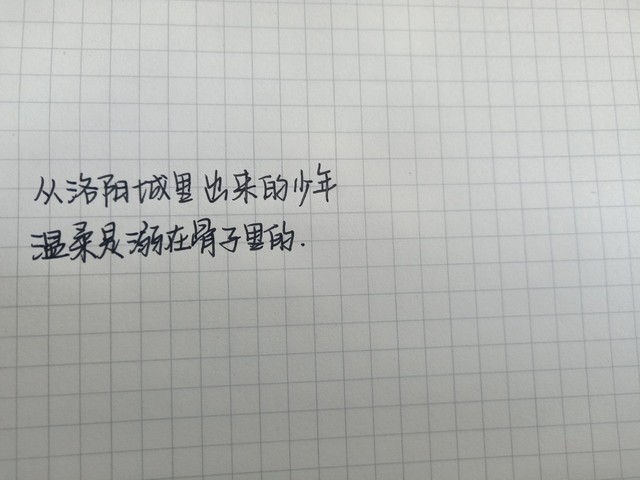 从洛阳城里出来的少年
温柔是溺在骨子里的.